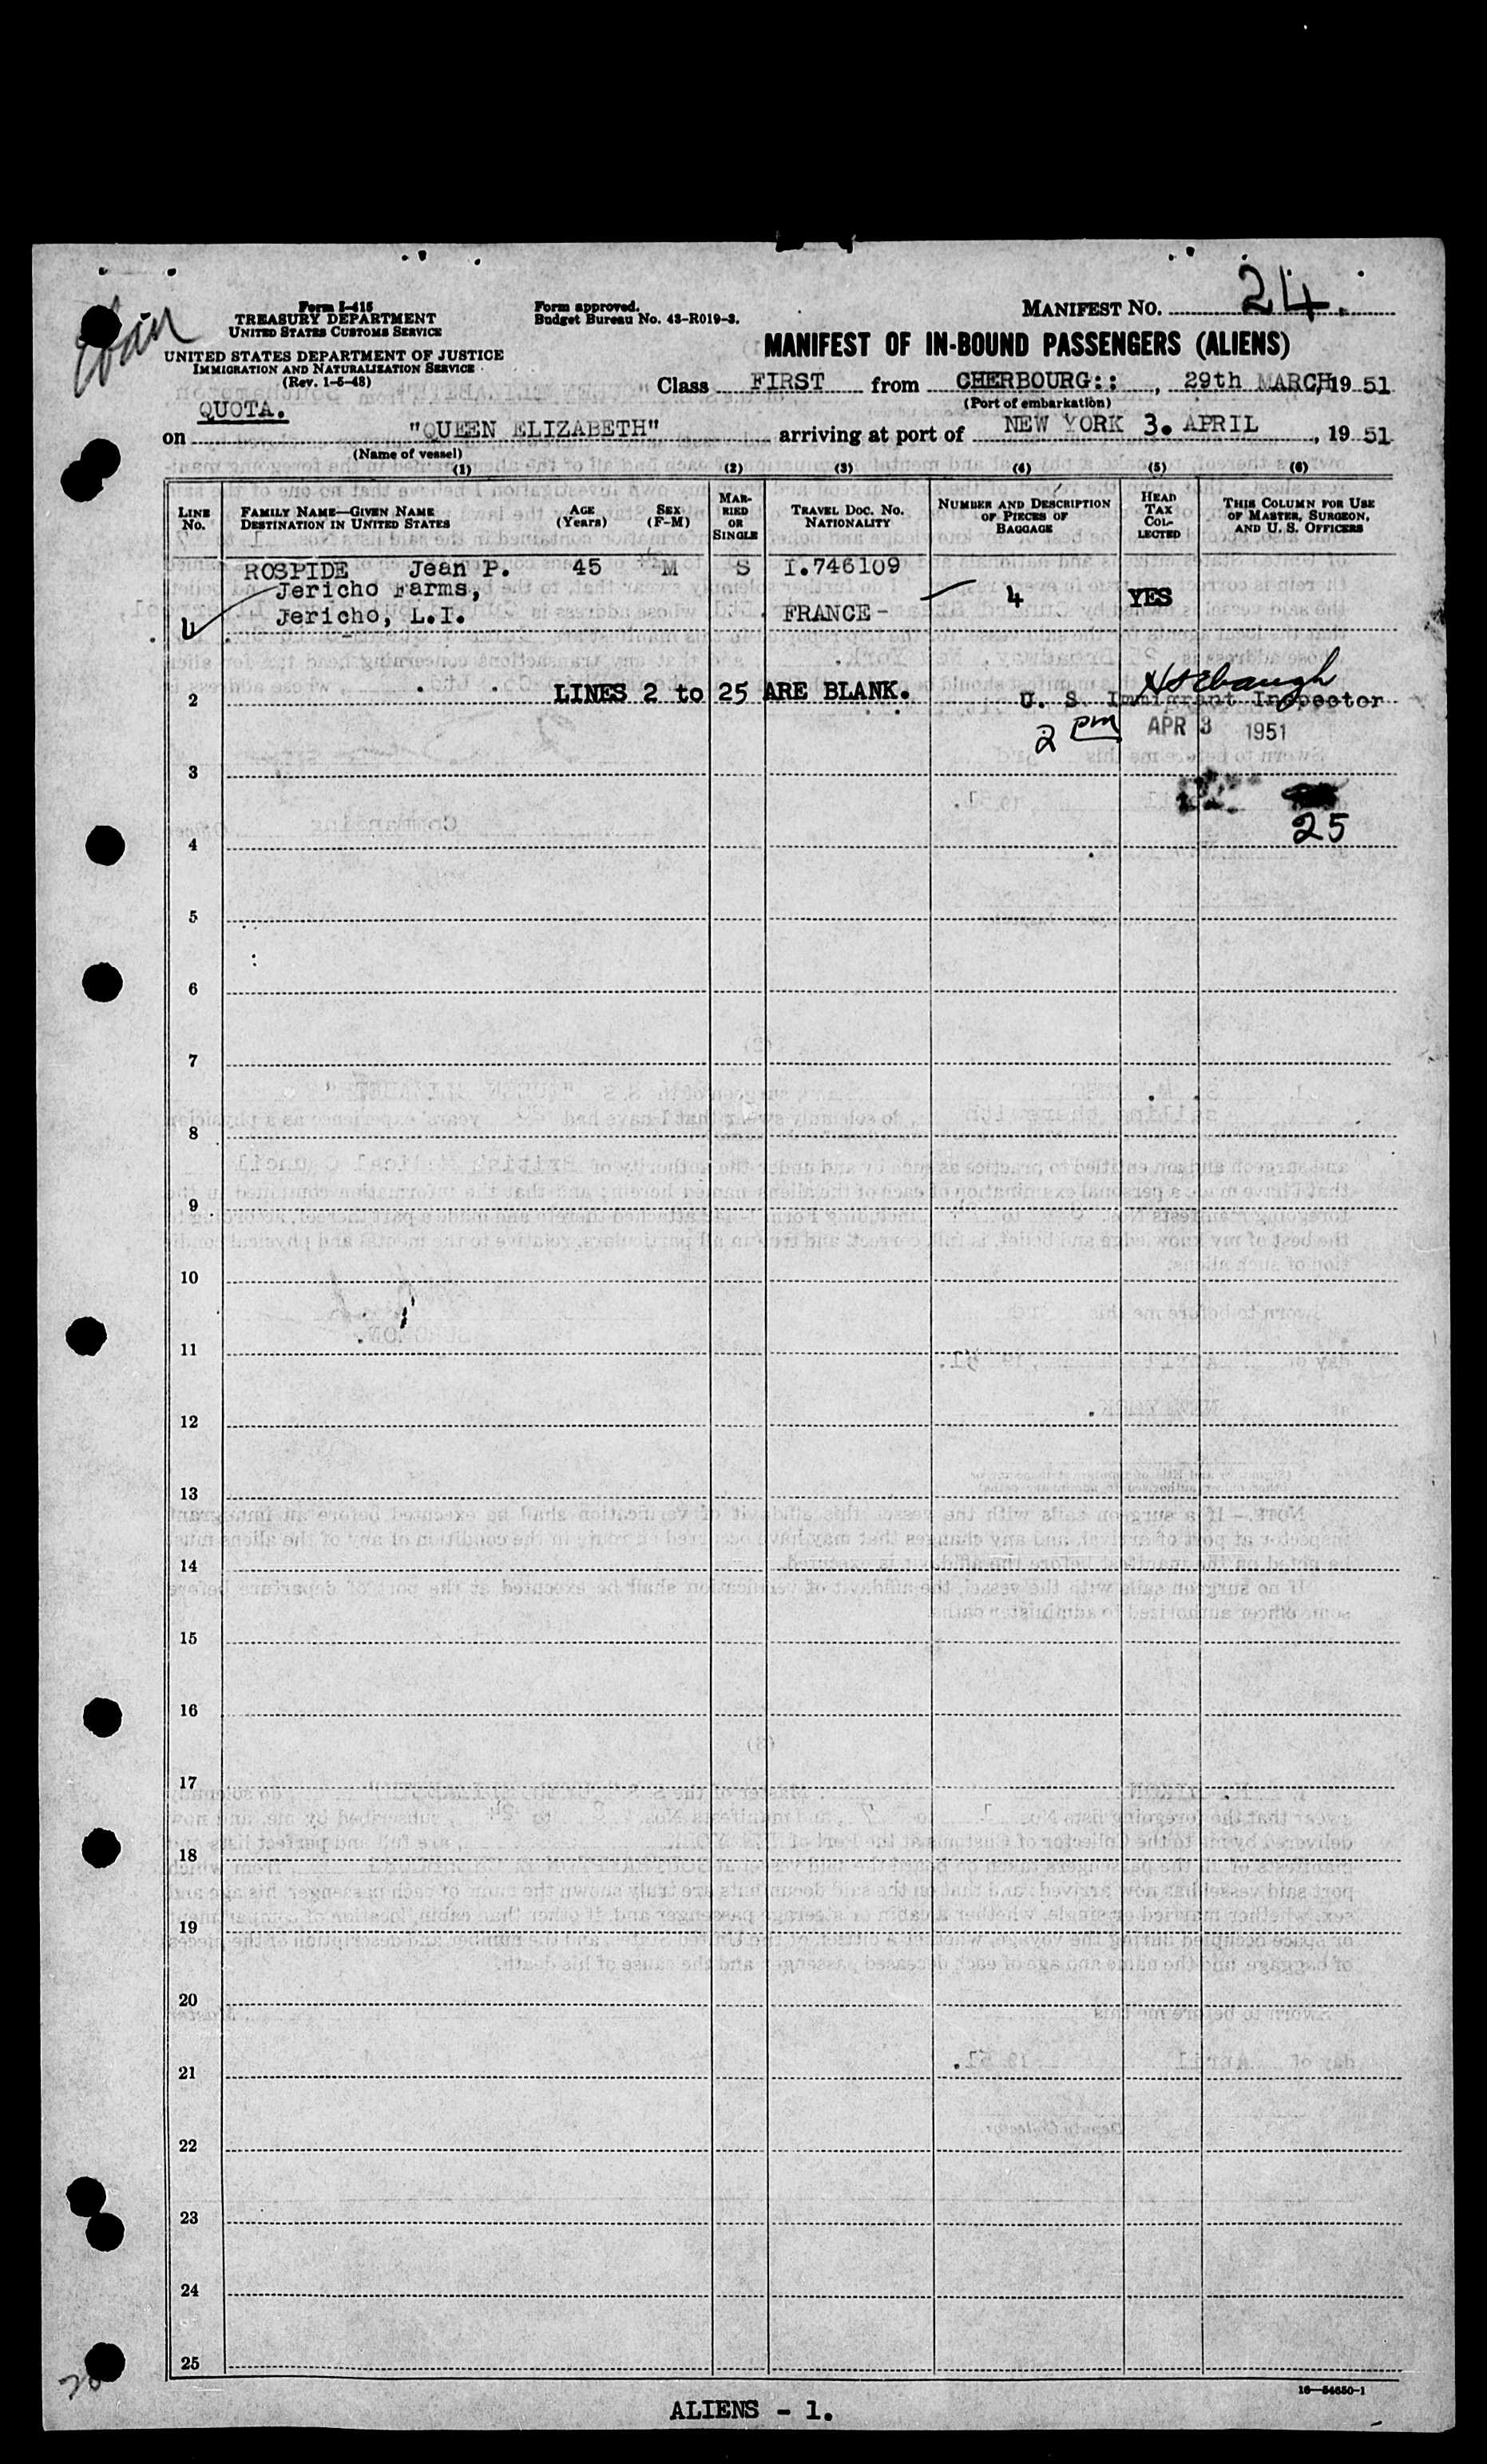 Form I-415
TREASURY DEPARTMENT
UNITED STATES CUSTOMS SERVICE
UNITED STATES DEPARTMENT OF JUSTICE
IMMIGRATION AND NATURALIZATION SERVICE
(Rev. 1-5-48)
Form approved.
Budget Bureau No. 43-R019-3.
MANIFEST NO. 24.
MANIFEST OF IN-BOUND PASSENGERS (ALIENS)
Class FIRST from CHERBOURG:: , 29th MARCH, 19 51
(Port of embarkation)
QUOTA.
on "QUEEN ELIZABETH" arriving at port of NEW YORK 3. APRIL , 19 51
(Name of vessel)
(1) (2) (3) (4) (5) (6)
LINE No. FAMILY NAME—GIVEN NAME DESTINATION IN UNITED STATES AGE (Years) SEX (F-M) MARRIED OR SINGLE TRAVEL DOC. NO. NATIONALITY NUMBER AND DESCRIPTION OF PIECES OF BAGGAGE HEAD TAX COLLECTED THIS COLUMN FOR USE OF MASTER, SURGEON, AND U. S. OFFICERS
ROSPIDE Jean P. 45 M S I.746109
Jericho Farms, 4 YES
Jericho, L.I. FRANCE-
2 LINES 2 to 25 ARE BLANK. U. S. Immigrant Inspector
2 pm APR 3 1951
3
25
4
5
6
7
8
9
10
11
12
13
14
15
16
17
18
19
20
21
22
23
24
25
16—54650-1
ALIENS - 1.